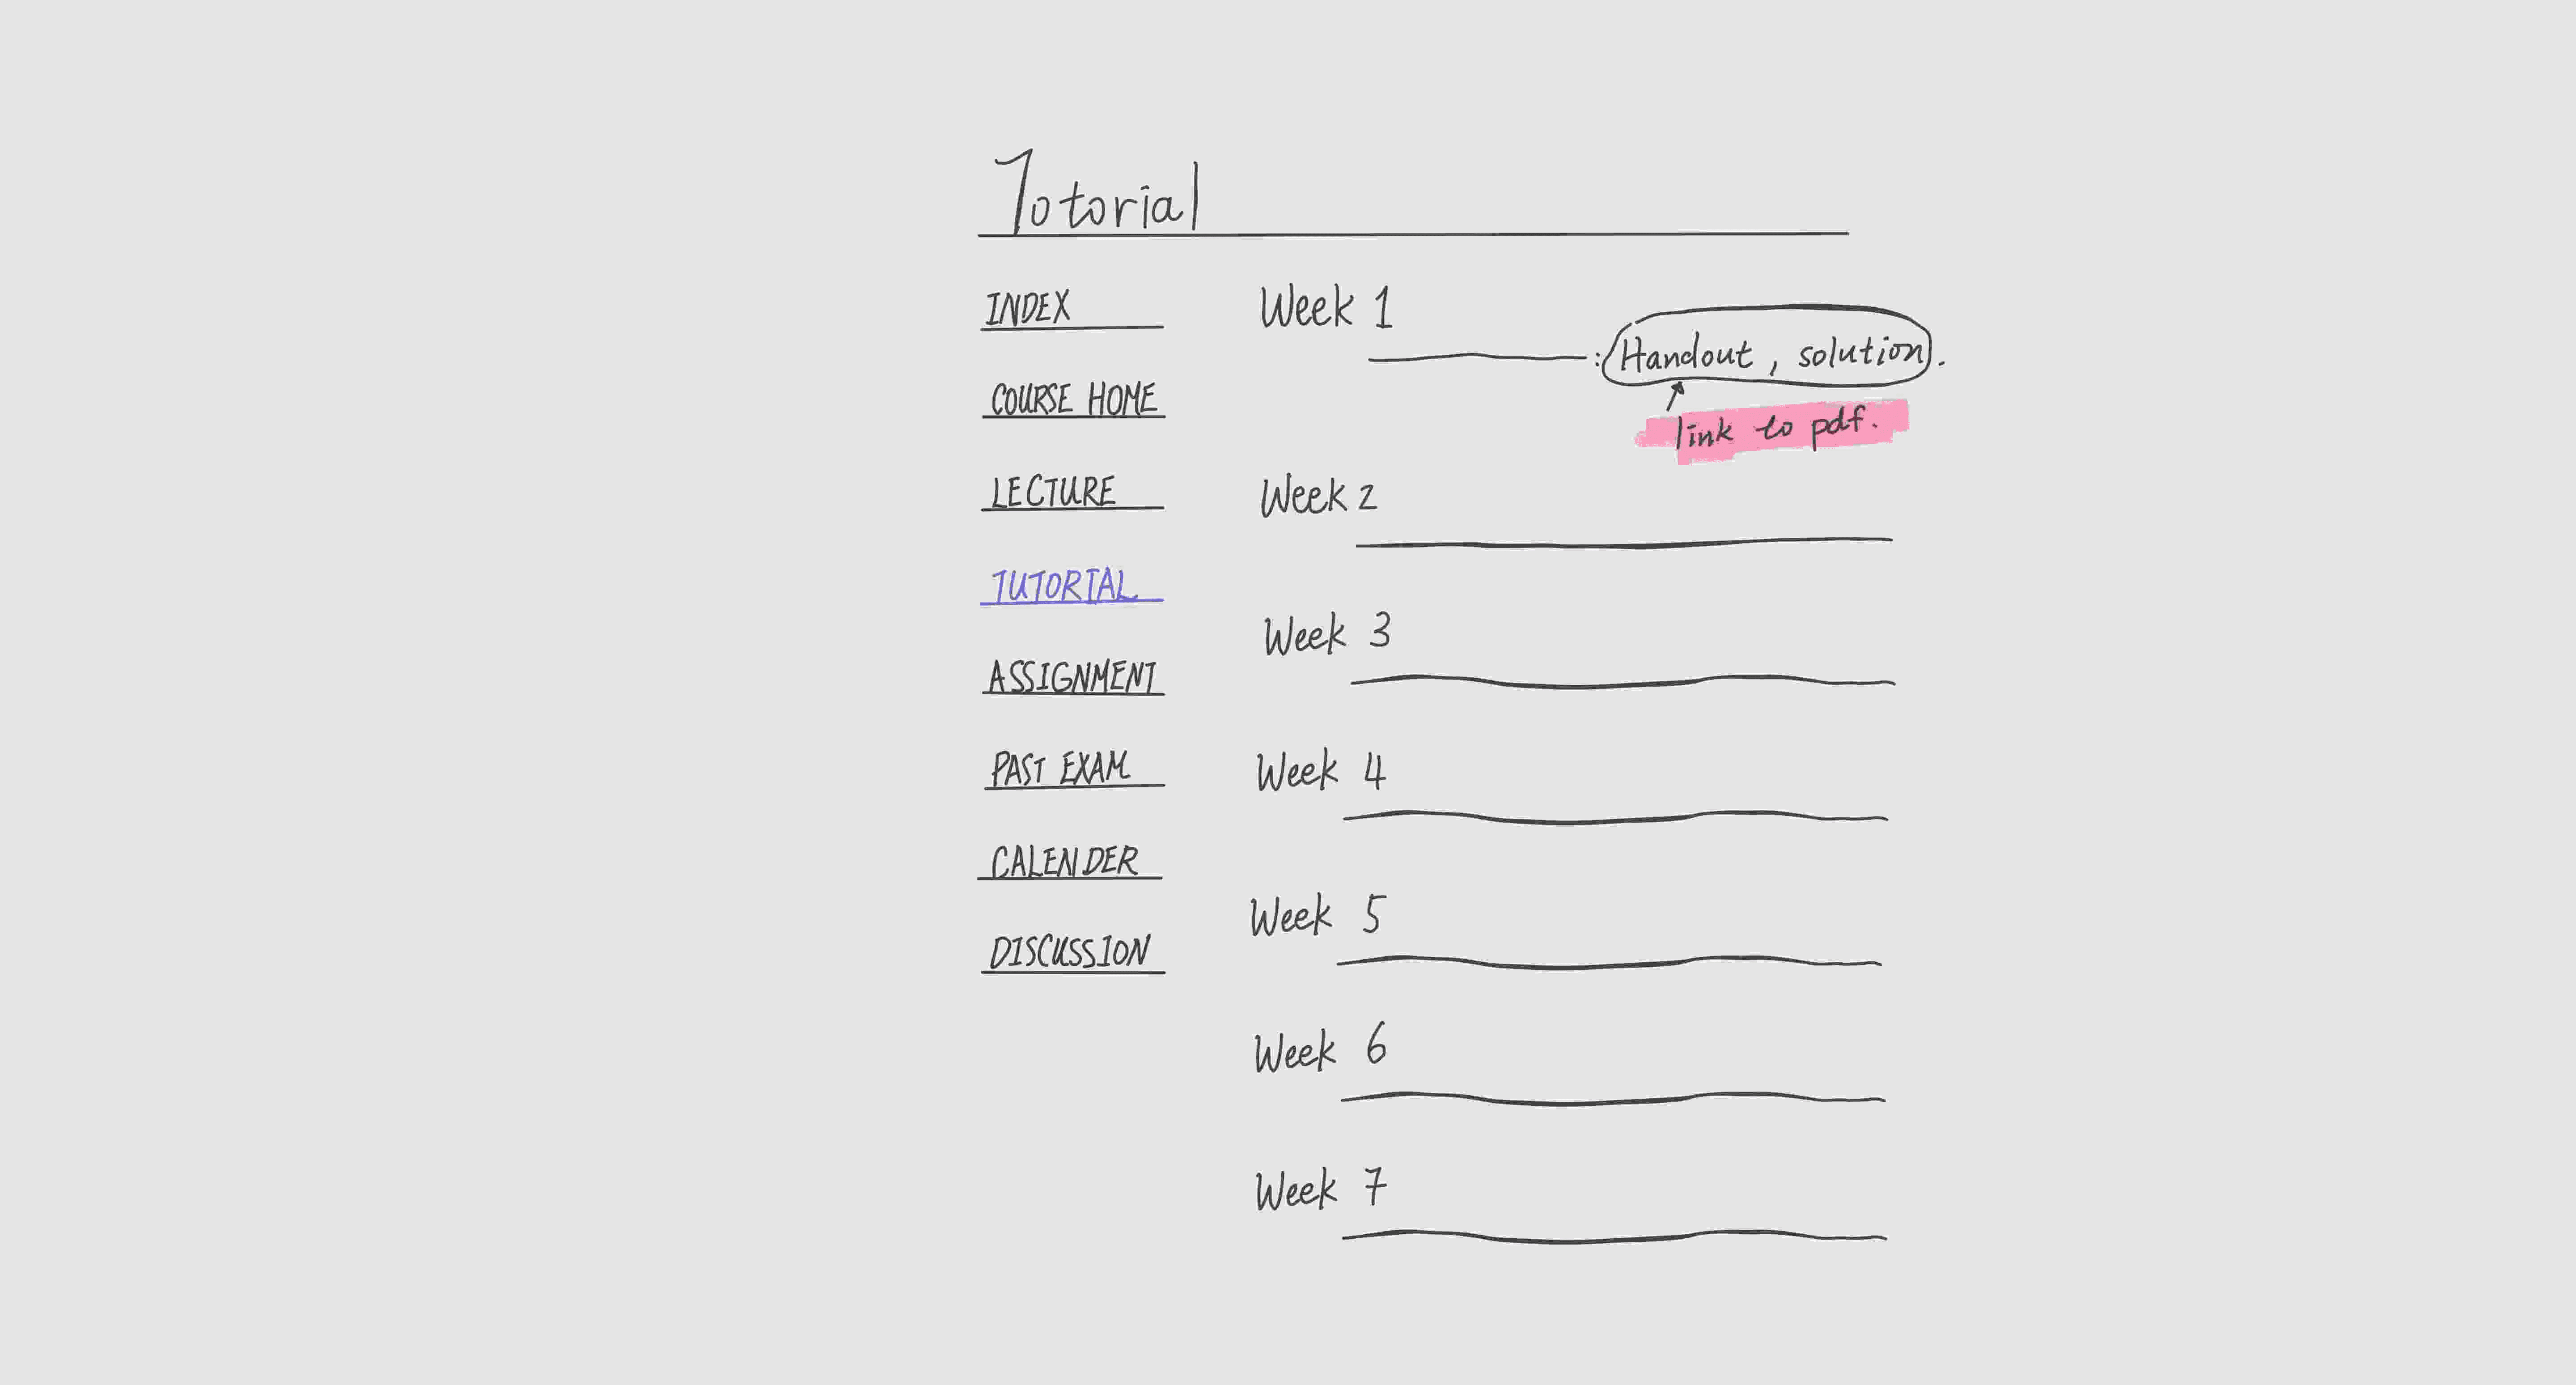 Totorial
INDEX
COURSE HOME
LECTURE
TUTORIAL
ASSIGNMENT
PAST EXAM
CALENDER
DISCUSSION
Week 1
: Handout, solution.
link to pdf.
Week 2
Week 3
Week 4
Week 5
Week 6
Week 7